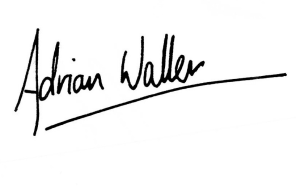 Adrian Waller